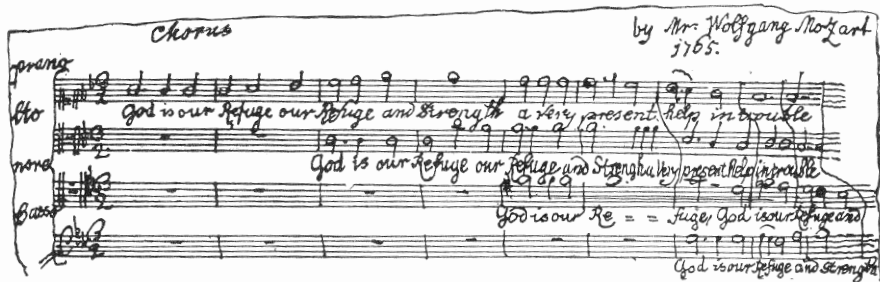 Chorus
by Mr. Wolfgang Mozart
1765.
Soprano
God is our Refuge our Refuge and Strength a very present help in trouble
Alto
God is our Refuge our Refuge and Strength a very present help in trouble
Tenore
God is our Re = = fuge, God is our Refuge and
Basso
God is our Refuge and Strength